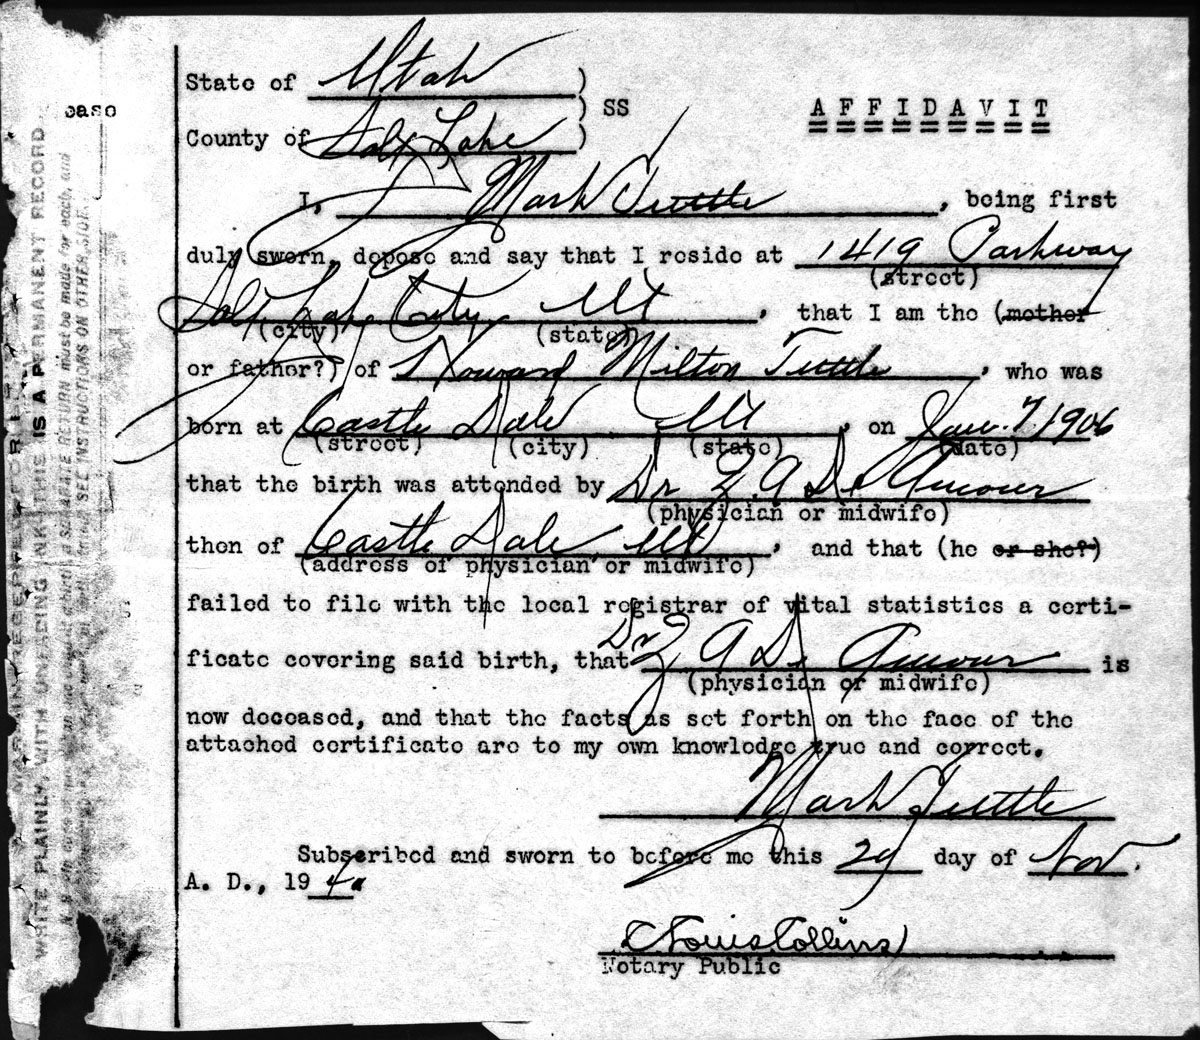 State of Utah )
) SS
County of Salt Lake )
AFFIDAVIT
I, Mark Tuttle, being first
duly sworn, depose and say that I reside at 1419 Parkway
(street)
Salt Lake City, Ut, that I am the (mother
(city) (state)
or father?) of Howard Milton Tuttle, who was
born at Castle Dale Ut, on Jan. 7, 1906
(street) (city) (state) (date)
that the birth was attended by Dr
(physician or midwife)
then of Castle Dale, Ut, and that (he or she?)
(address of physician or midwife)
failed to file with the local registrar of vital statistics a certi-
ficate covering said birth, that Dr is
(physician or midwife)
now deceased, and that the facts as set forth on the face of the
attached certificate are to my own knowledge true and correct.
Mark Tuttle
Subscribed and sworn to before me this day of Nov.
A. D., 19
Collins
Notary Public
ease
WRITE PLAINLY, WITH UNFADING INK—THIS IS A PERMANENT RECORD
a SEPARATE RETURN must be made for each, and
SEE INSTRUCTIONS ON OTHER SIDE.